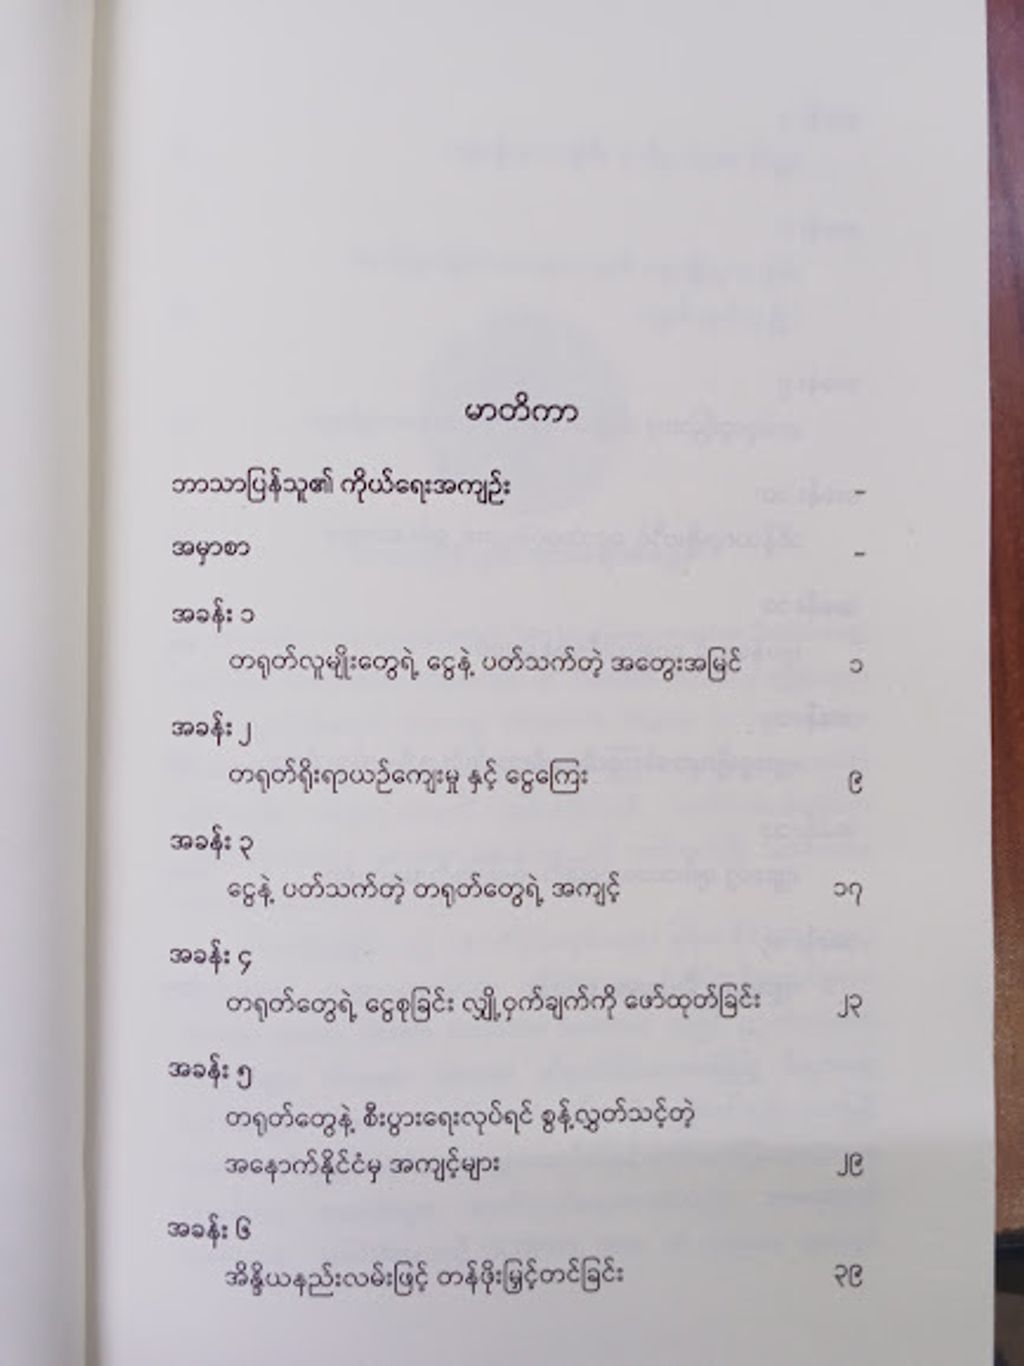 မာတိကာ
ဘာသာပြန်သူ၏ ကိုယ်ရေးအကျဉ်း -
အမှာစာ -
အခန်း ၁
တရုတ်လူမျိုးတွေရဲ့ ငွေနဲ့ ပတ်သက်တဲ့ အတွေးအမြင် ၁
အခန်း ၂
တရုတ်ရိုးရာယဉ်ကျေးမှု နှင့် ငွေကြေး ၉
အခန်း ၃
ငွေနဲ့ ပတ်သက်တဲ့ တရုတ်တွေရဲ့ အကျင့် ၁၇
အခန်း ၄
တရုတ်တွေရဲ့ ငွေစုခြင်း လျှို့ဝှက်ချက်ကို ဖော်ထုတ်ခြင်း ၂၃
အခန်း ၅
တရုတ်တွေနဲ့ စီးပွားရေးလုပ်ရင် စွန့်လွှတ်သင့်တဲ့
အနောက်နိုင်ငံမှ အကျင့်များ ၂၉
အခန်း ၆
အိန္ဒိယနည်းလမ်းဖြင့် တန်ဖိုးမြှင့်တင်ခြင်း ၃၉